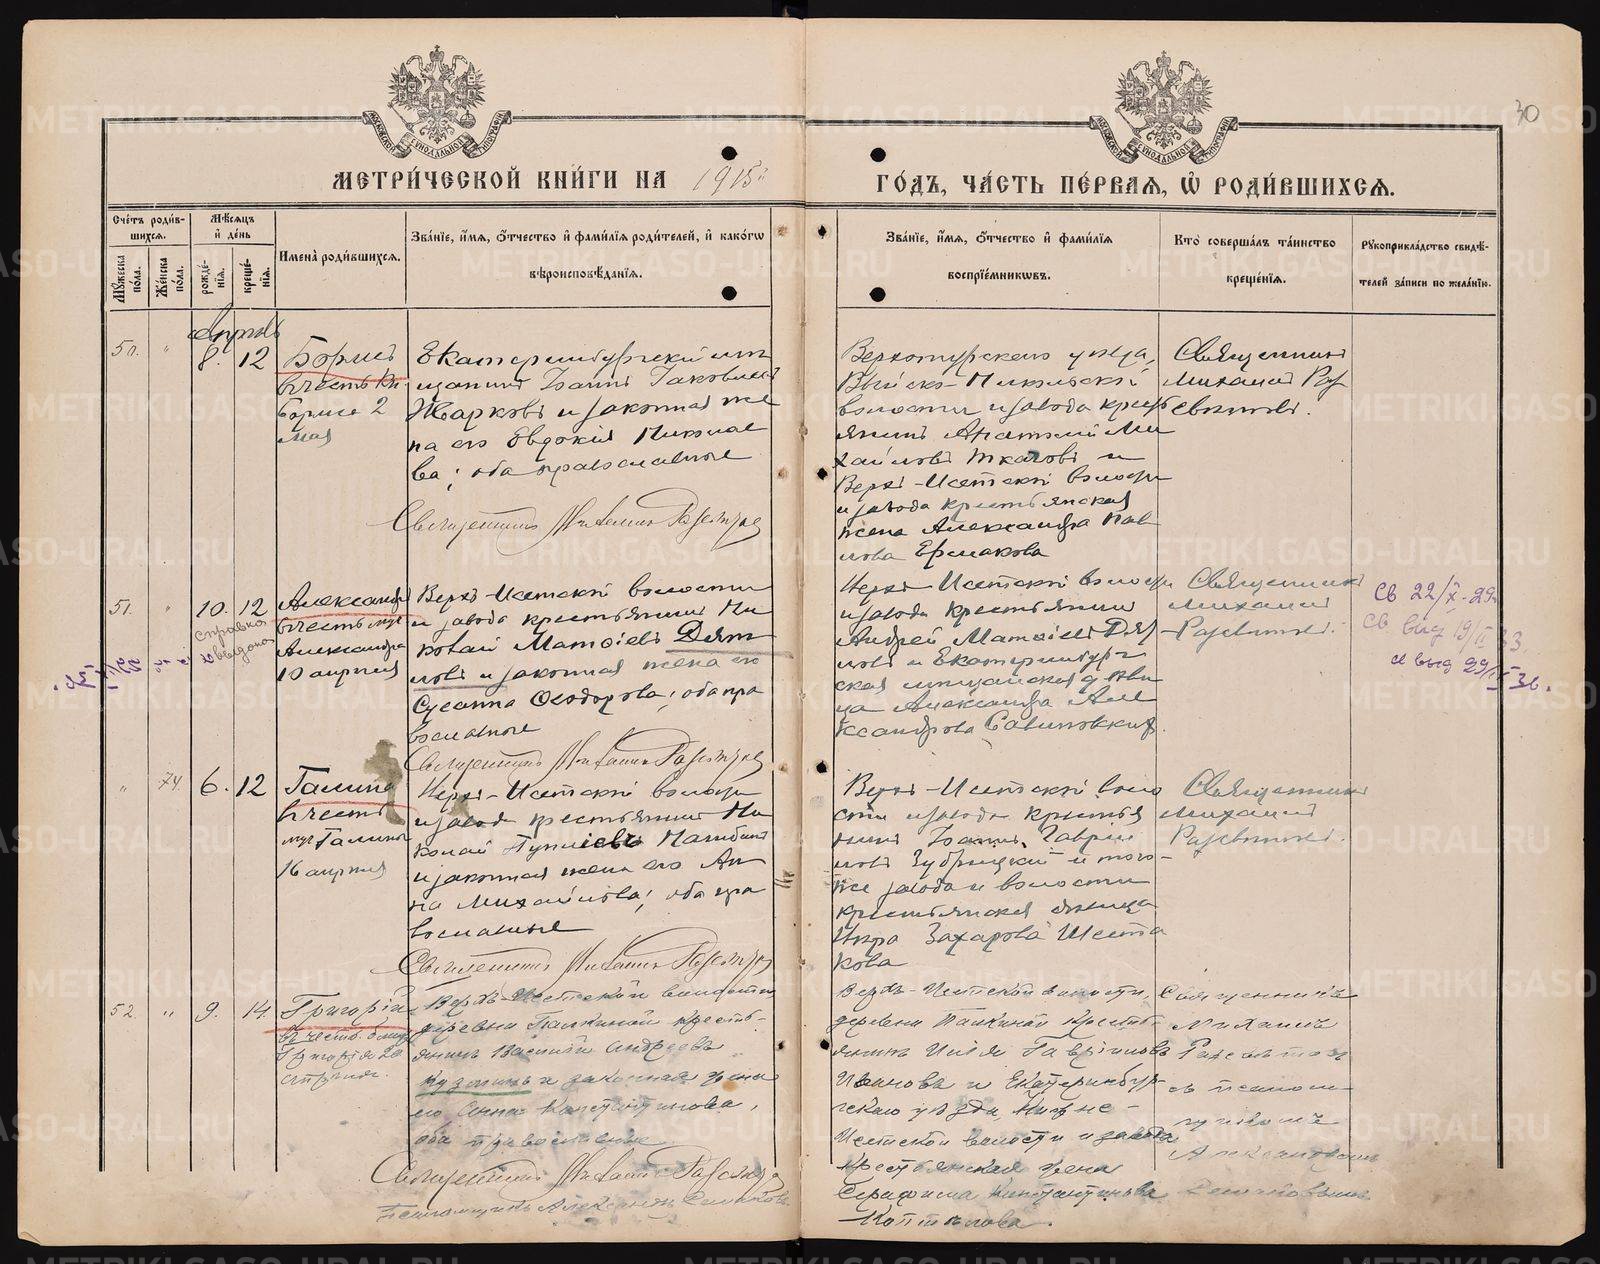 30
МЕТРИ́ЧЕСКОЙ КНИ́ГИ НА 1915 г ГО́ДЪ, ЧА́СТЬ ПЕ́РВАЯ, Ѽ РОДИ́ВШИХСЯ.
Сче́тъ роди́в-
шихся.
Мꙋ́жеска по́ла.
Же́нска по́ла.
Мѣ́сяцъ и де́нь
рожде́-нія.
креще́-нія.
Имена̀ роди́вшихся.
Зва́ніе, и́мя, ѻ́тчество и фами́лія роди́телей, и како́гѡ
вѣроисповѣ́данія.
Зва́ніе, и́мя, ѻ́тчество и фами́лія
воспріе́мникѡвъ.
Кто̀ соверша́лъ та́инство
креще́нія.
Рꙋкоприкла́дство свидѣ́-
телей за́писи по жела́нію.
Апрѣль
50. " 8. 12
Борисъ
въ честь Кн.
Бориса 2
мая
Екатеринбургскій мѣ-
щанинъ Іоаннъ Іаковлевъ
Жарковъ и законная же
на его Евдокія Николае
ва; оба православные
Священникъ Михаилъ
Верхотурскаго уѣзда,
Выйско-Никольской
волости и завода кресть
янинъ Анатолій Ми
хайловъ Ткачовъ и
Верхъ-Исетской волости
и завода крестьянская
жена Александра Пав
лова Ермакова
Священникъ
Михаилъ
51. " 10. 12
справка
выдана
Александръ
въ честь муч
Александра
10 апрѣля
Верхъ-Исетской волости
и завода крестьянинъ Ни
колай Матѳіевъ Дят
ловъ и законная жена его
Сусанна Ѳеодорова; оба пра
вославные
Священникъ Михаилъ
Верхъ-Исетской волости
и завода крестьянинъ
Андрей Матѳіевъ Дят
ловъ и Екатеринбург
ская мѣщанская дѣви
ца Александра Але
ксандрова Савиновская.
Священникъ
Михаилъ
Св 22/X-29
Св выд 19/II 33
и выд 29/II 36.
" 74. 6. 12
Галина
въ честь
муч Галины
16 апрѣля
Верхъ-Исетской волости
и завода крестьянинъ Ни
колай
и законная жена его Ан
на Михайлова; оба пра
вославные
Священникъ Михаилъ
Верхъ-Исетской воло
сти и завода крестья
нинъ Іоаннъ Гаврии
ловъ Зубрицкій и того-
же завода и волости
крестьянская дѣвица
Захарова Шеста
кова
Священникъ
Михаилъ
52. " 9. 14
Григорій
въ честь
Григорія 20
апрѣля.
Верхъ-Исетской волости
деревни Палкиной кресть-
янинъ Василій Андреевъ
Кузминъ и законная жена
его Анна Константинова,
оба православные
Священникъ Михаилъ
Псаломщикъ Александръ
Верхъ-Исетской волости,
деревни Палкиной кресть-
янинъ Илія Гавріиловъ
Ивановъ и Екатеринбур-
гскаго уѣзда, Нижне-
Исетской волости и завода
крестьянская жена
Серафима Константинова
Священникъ
Михаилъ
съ псаломщ-
Александромъ